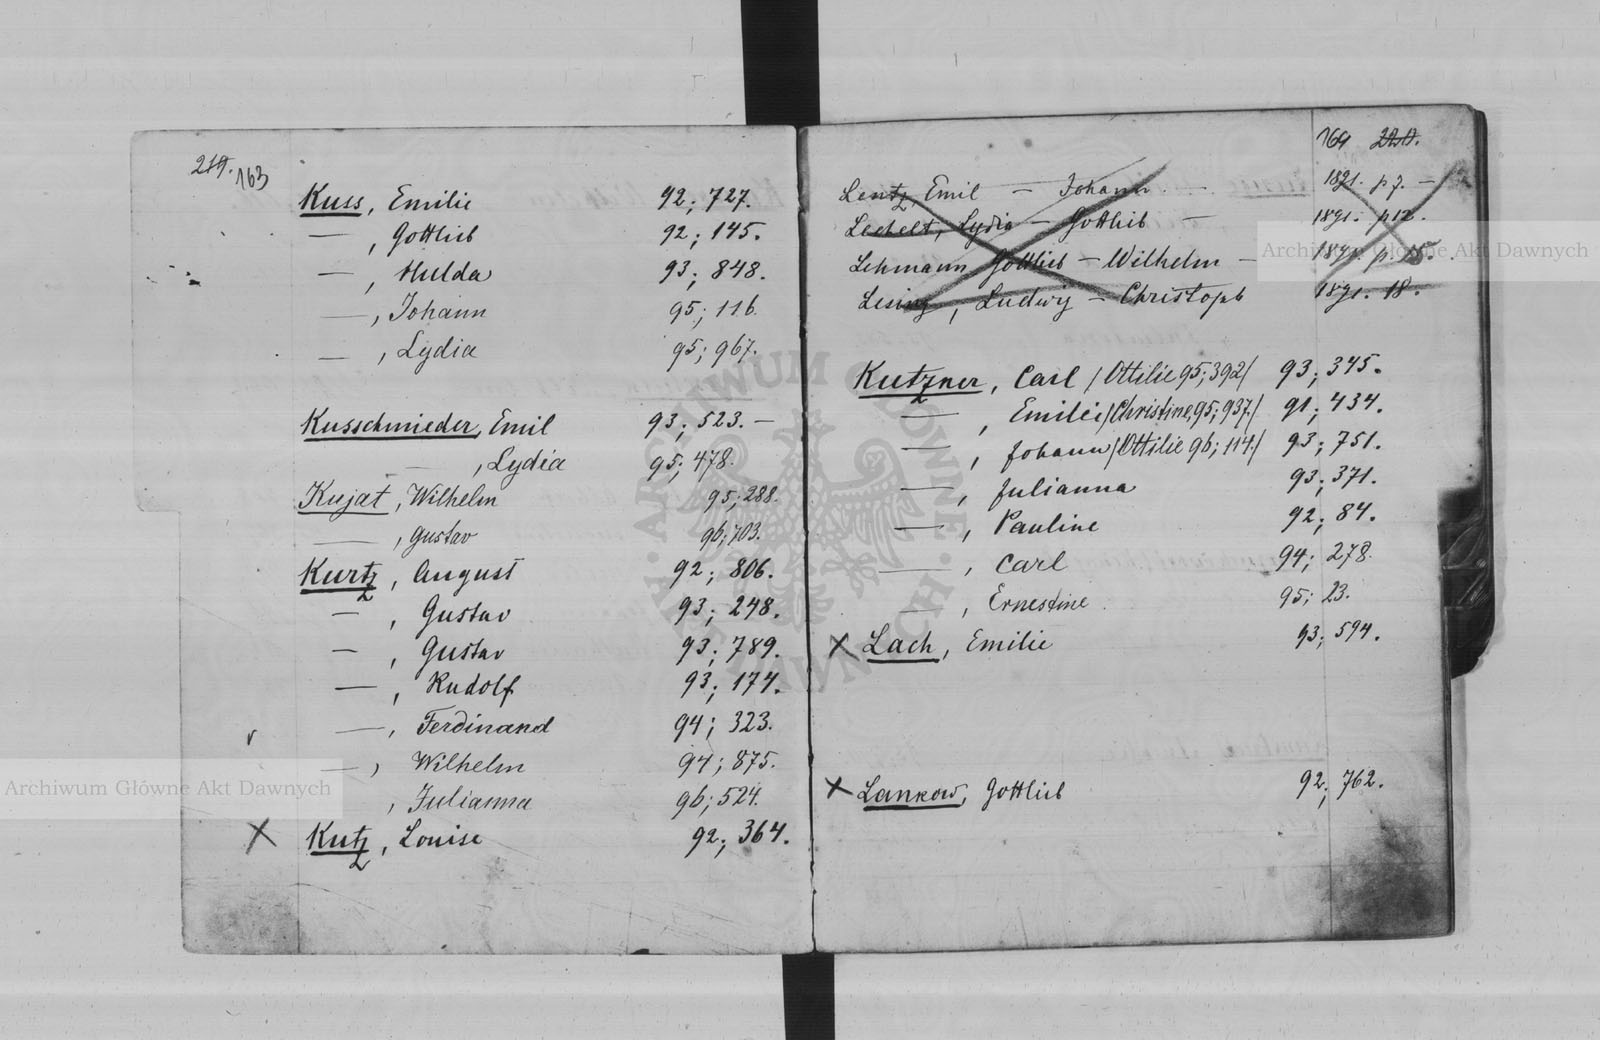 219. 163
Kuss, Emilie 92; 727.
— , Gottlieb 92; 145.
— , Hulda 93; 848.
— , Johann 95; 116.
— , Lydia 95; 967.
Kusschmieder, Emil 93; 523. —
— , Lydia 95; 478.
Kujat, Wilhelm 95; 288.
— , Gustav 96; 703.
Kurtz, August 92; 806.
— , Gustav 93; 248.
— , Gustav 93; 789.
— , Rudolf 93; 174.
— , Ferdinand 94; 323.
— , Wilhelm 94; 875.
, Julianna 96; 524.
X Kutz, Louise 92; 364.
164
Lentz, Emil — Johann. — 1891. p 7. —
Lechelt, Lydia — Gottlieb — 1891. p 12.
Lehmann Gottlieb — Wilhelm — 1891. p. 15.
Lesing, Ludwig — Christoph 1891. 18.
Kutzner, Carl /Ottilie 95; 392/ 93; 345.
— , Emilie /Christine, 95; 937./ 91; 434.
— , Johann /Ottilie 96; 114./ 93; 751.
— , Julianna 93; 371.
— , Pauline 92; 84.
— , Carl 94; 278.
— , Ernestine 95; 23.
X Lach, Emilie 93; 594.
X Lankow, Gottlieb 92; 762.
Archiwum Główne Akt Dawnych
Archiwum Główne Akt Dawnych
ARCHIWUM GŁÓWNE AKT DAWNYCH